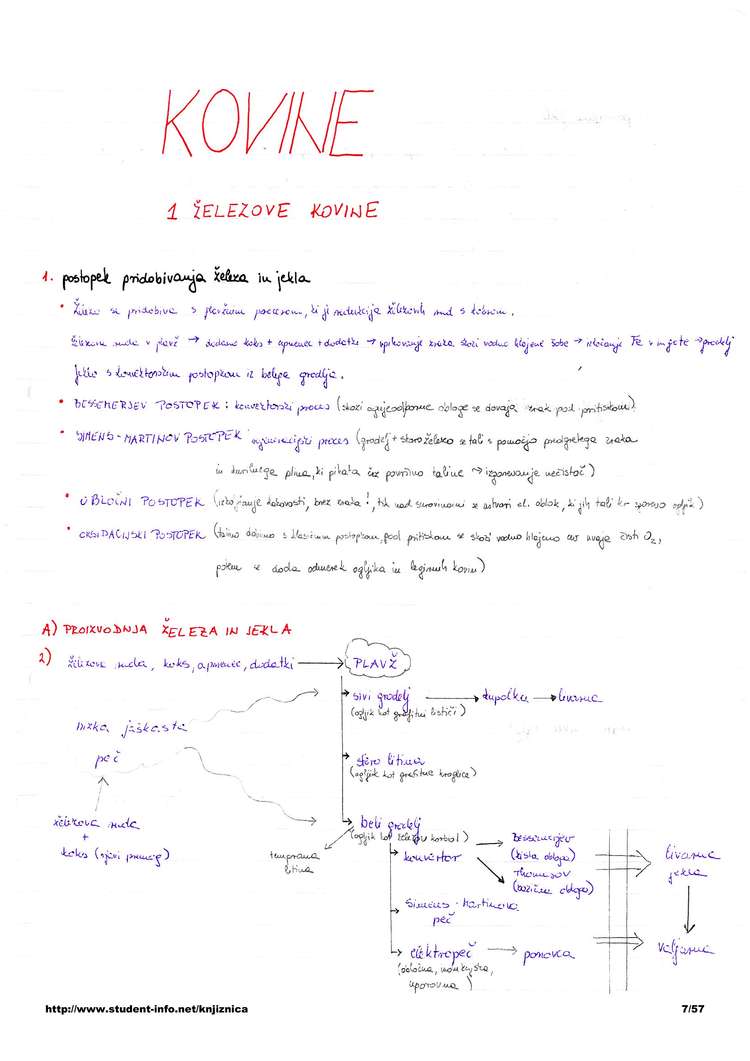 KOVINE
1 ŽELEZOVE KOVINE
1. postopek pridobivanja železa in jekla
• Železo se pridobiva s plavžnim procesom, ki je redukcija železovih rud s koksom.
železova ruda v plavž → dodamo koks + apnenec + dodatki → vpihovanje zraka skozi vodno hlajene šobe → Fe v mjete → grodelj
Jeklo s konvertorskim postopkom iz belega grodlja.
• BESSEMERJEV POSTOPEK: konvertorski proces (skozi ognjeodporne obloge se dovaja zrak pod pritiskom)
• SIMENS-MARTINOV POSTOPEK regeneracijski proces (grodelj + staro železo se tali s pomočjo predgretega zraka
in kurilnega plina, ki pihata čez površino taline → izgorevanje nečistoč)
• OBLOČNI POSTOPEK (izboljšanje kakovosti, brez zraka!, tik nad surovinami se ustvari el. oblok, ki jih tali)
• OKSIDACIJSKI POSTOPEK (talino dobimo s klasičnim postopkom, pod pritiskom se skozi vodno hlajeno cev uvaja čisti O₂,
potem se doda odmerek ogljika in legirnih kovin)
A) PROIZVODNJA ŽELEZA IN JEKLA
2) železova ruda, koks, apnenec, dodatki → PLAVŽ
→ sivi grodelj → kupolka → livarna
(ogljik kot grafitni lističi)
nizka jaškasta
peč
→ siva litina
(ogljik kot grafitne kroglice)
železova ruda
+
koks (rjavi premog)
→ beli grodelj
(ogljik kot železov karbid)
temprana
litina
→ konvertor
→ Bessemerjev
(kisla obloga)
→ Thomasov
(bazična obloga)
livarna
jekla
→ Simens-Martinova
peč
→ elektropeč → ponovca
(obločna, indukcijska,
uporovna)
valjarna
http://www.student-info.net/knjiznica
7/57